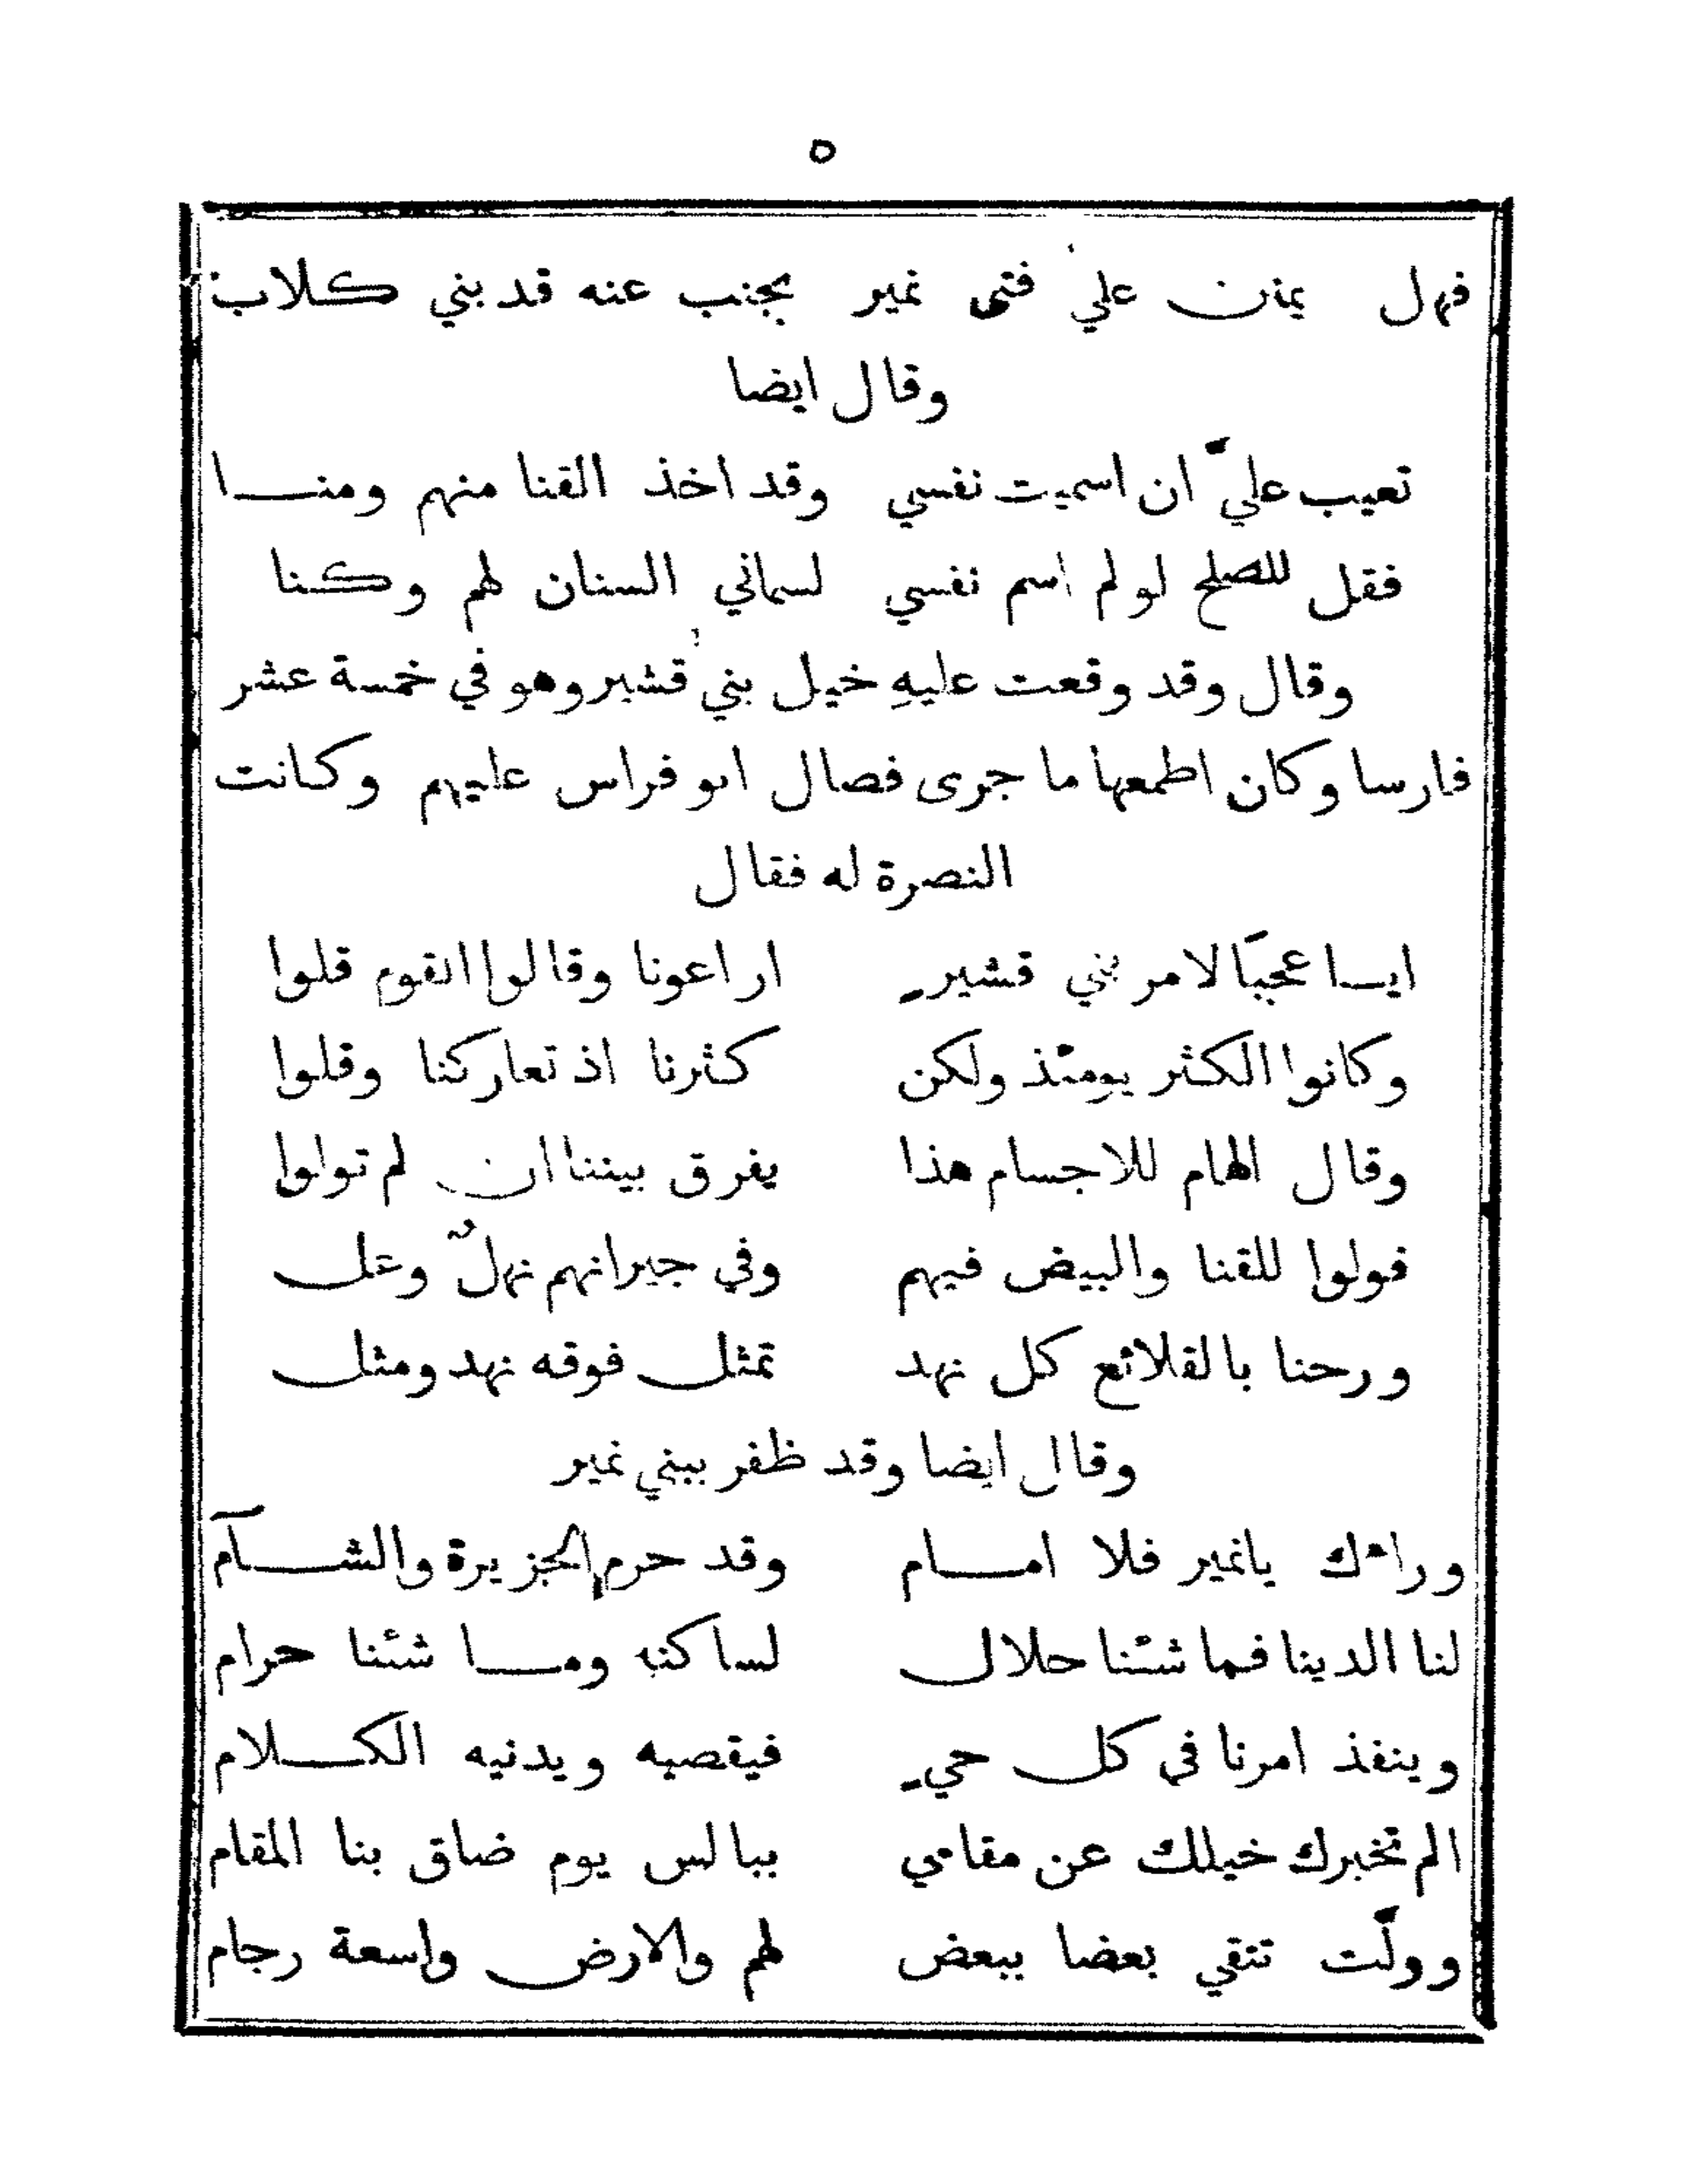 ٥
فهل يمنن علي فتى نمير بجنب عنه قد بني كلاب
وقال ايضا
تعيب عليّ ان اسميت نفسي وقد اخذ القنا منهم ومنا
فقل للصلح لو لم اسم نفسي لسماني السنان لهم وكنا
وقال وقد وقعت عليهِ خيل بني قشير وهو في خمسة عشر
فارسا وكان اطمعها ما جرى فصال ابو فراس عليهم وكانت
النصرة له فقال
ايا عجبًا لامر بني قشير اراعونا وقالوا القوم قلوا
وكانوا الكثر يومئذ ولكن كثرنا اذ تعاركنا وقلوا
وقال الهام للاجسام هذا يفرق بيننا ان لم تولوا
فولوا للقنا والبيض فيهم وفي جيرانهم نهلٌ وعل
ورحنا بالقلائع كل نهد تمثل فوقه نهد ومثل
وقال ايضا وقد ظفر ببني نمير
وراءك يانمير فلا امام وقد حرم الجزيرة والشآم
لنا الدينا فما شئنا حلال لساكنه وما شئنا حرام
وينفذ امرنا في كل حيٍ فيقصيه ويدنيه الكلام
الم تخبرك خيلك عن مقامي ببالس يوم ضاق بنا المقام
وولّت تتقي بعضا ببعض لهم والارض واسعة رجام